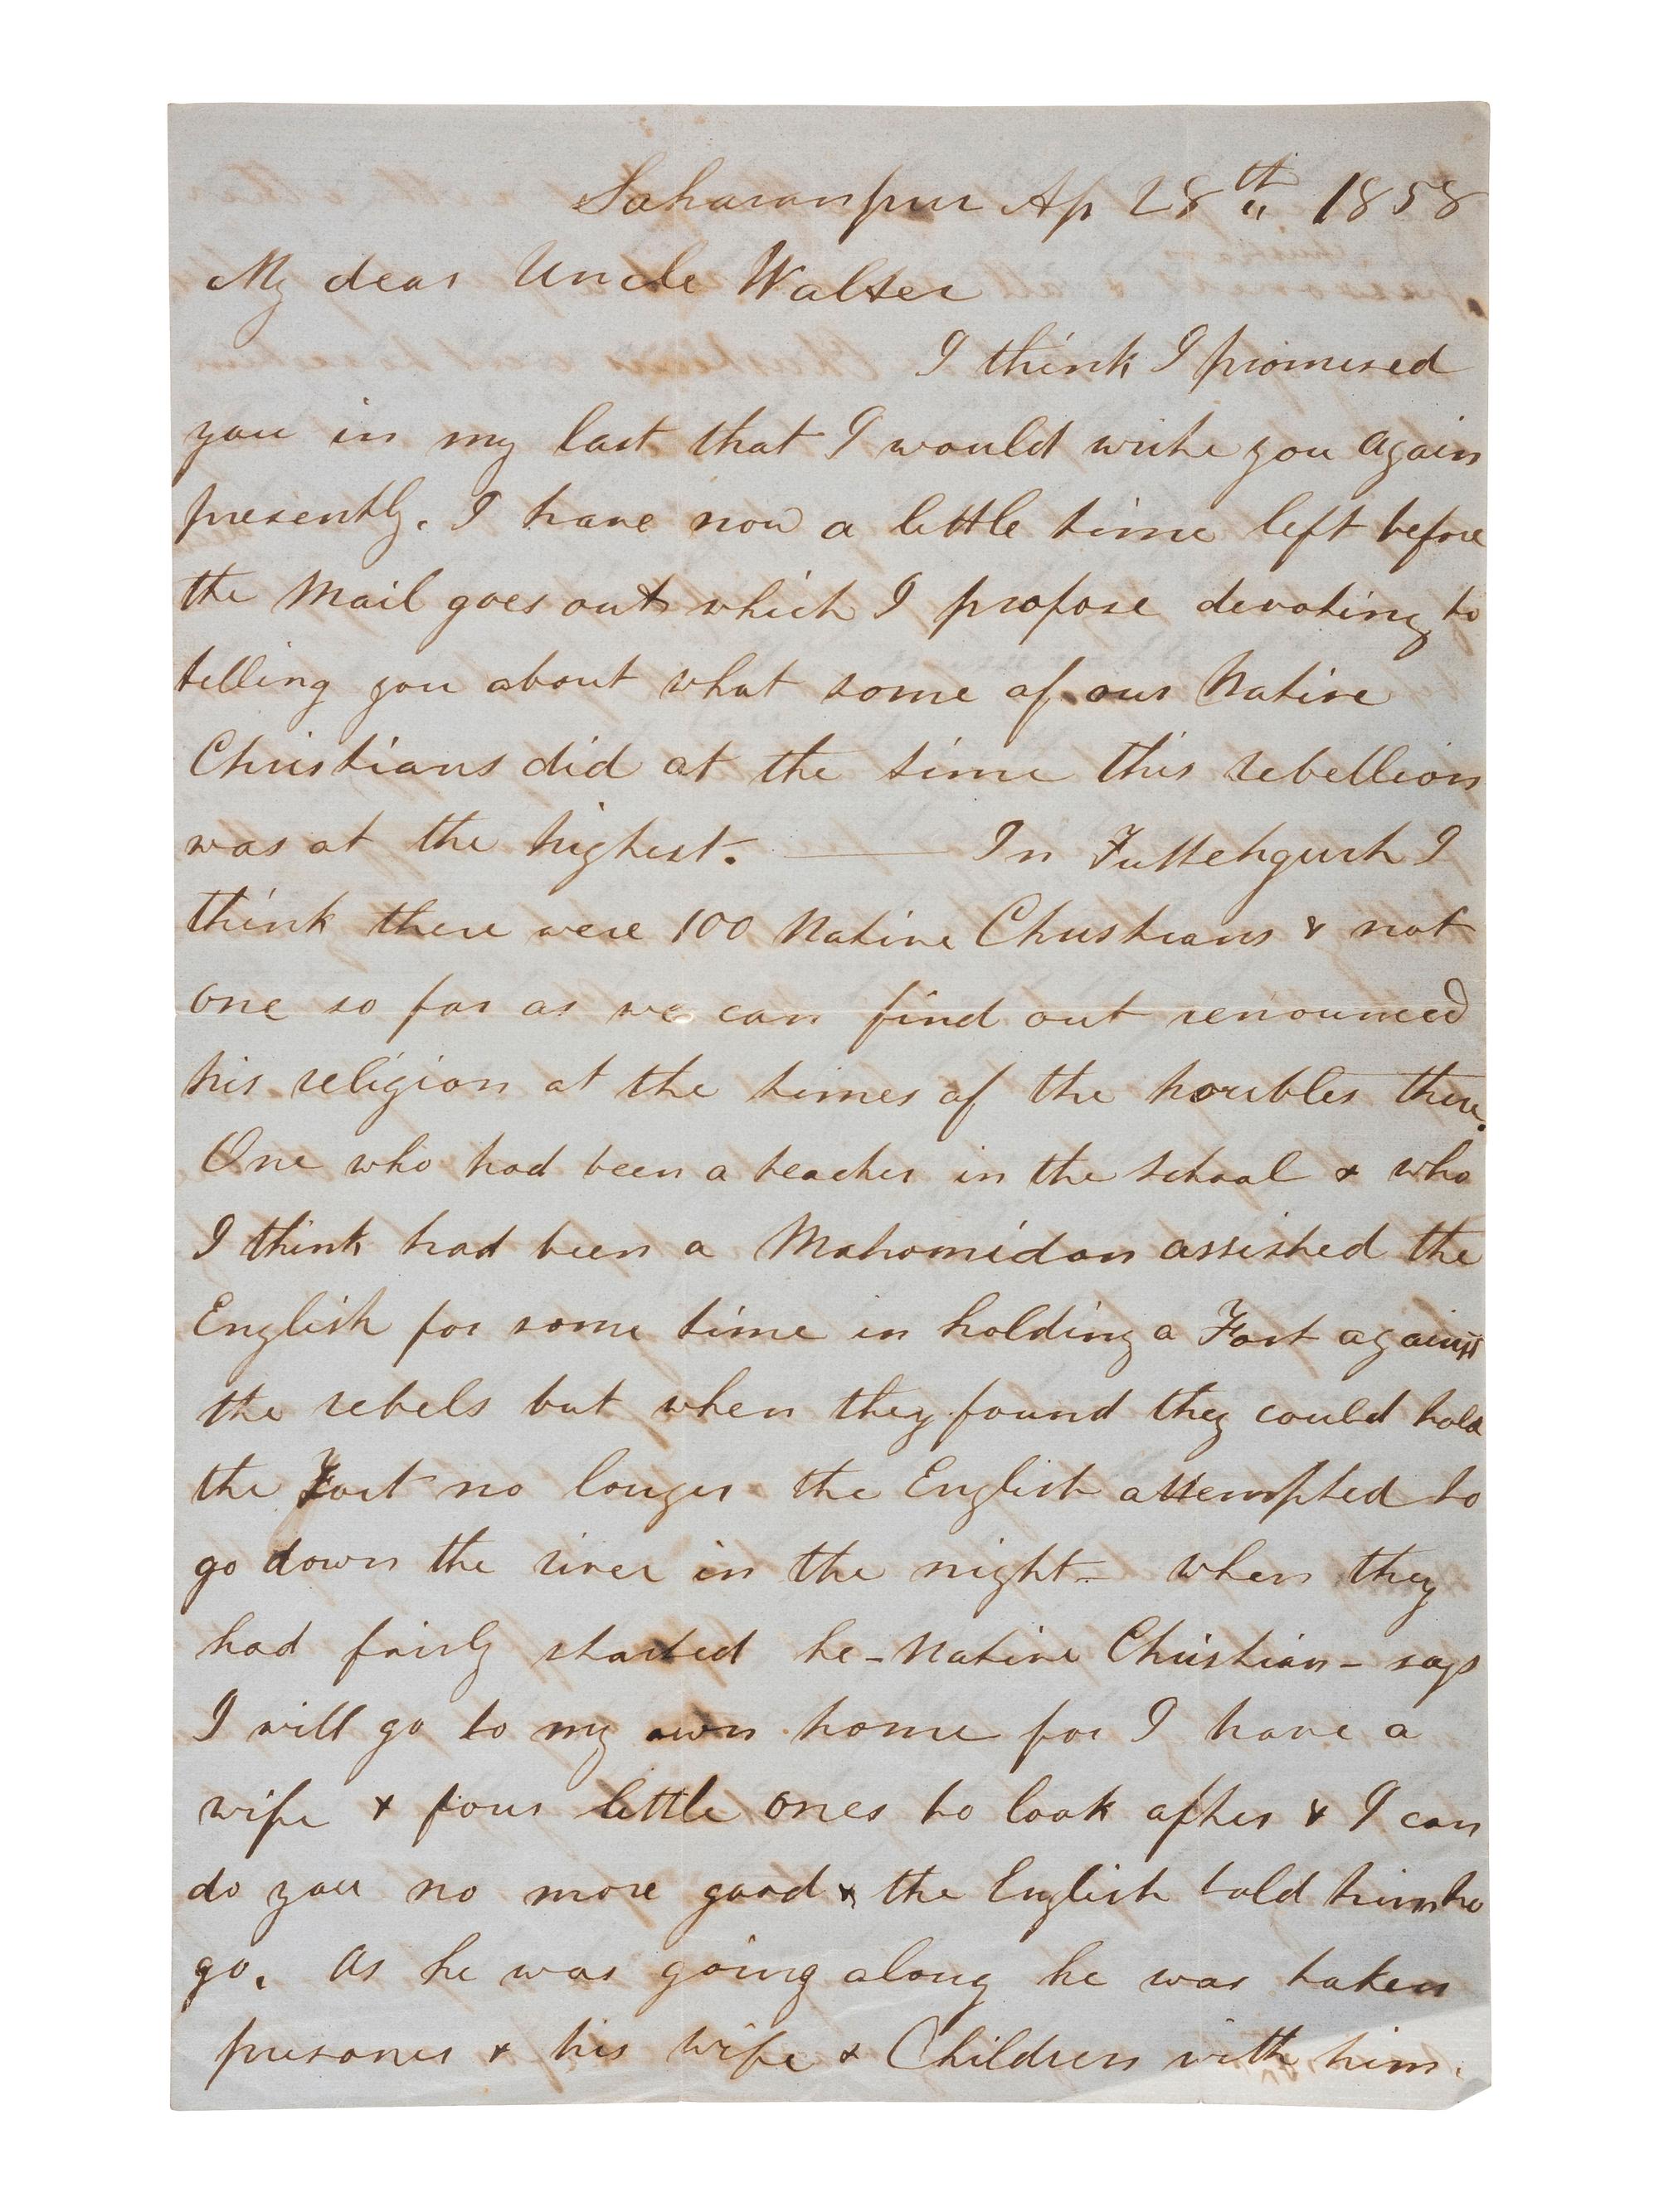 Saharanpur Ap 28th 1858
My dear Uncle Walter
I think I promised
you in my last that I would write you again
presently. I have now a little time left before
the Mail goes out which I propose devoting to
telling you about what some of our Native
Christians did at the time this rebellion
was at the highest. —— In Futtehgurh I
think there were 100 Native Christians & not
one so far as we can find out renounced
his religion at the times of the horribles there.
One who had been a teacher in the school & who
I think had been a Mahomidan assisted the
English for some time in holding a Fort against
the rebels but when they found they could hold
the Fort no longer the English attempted to
go down the river in the night – when they
had fairly started he – Native Christian – says
I will go to my own home for I have a
wife & four little ones to look after & I can
do you no more good & the English told him to
go. As he was going along he was taken
prisoner & his wife & Children with him.